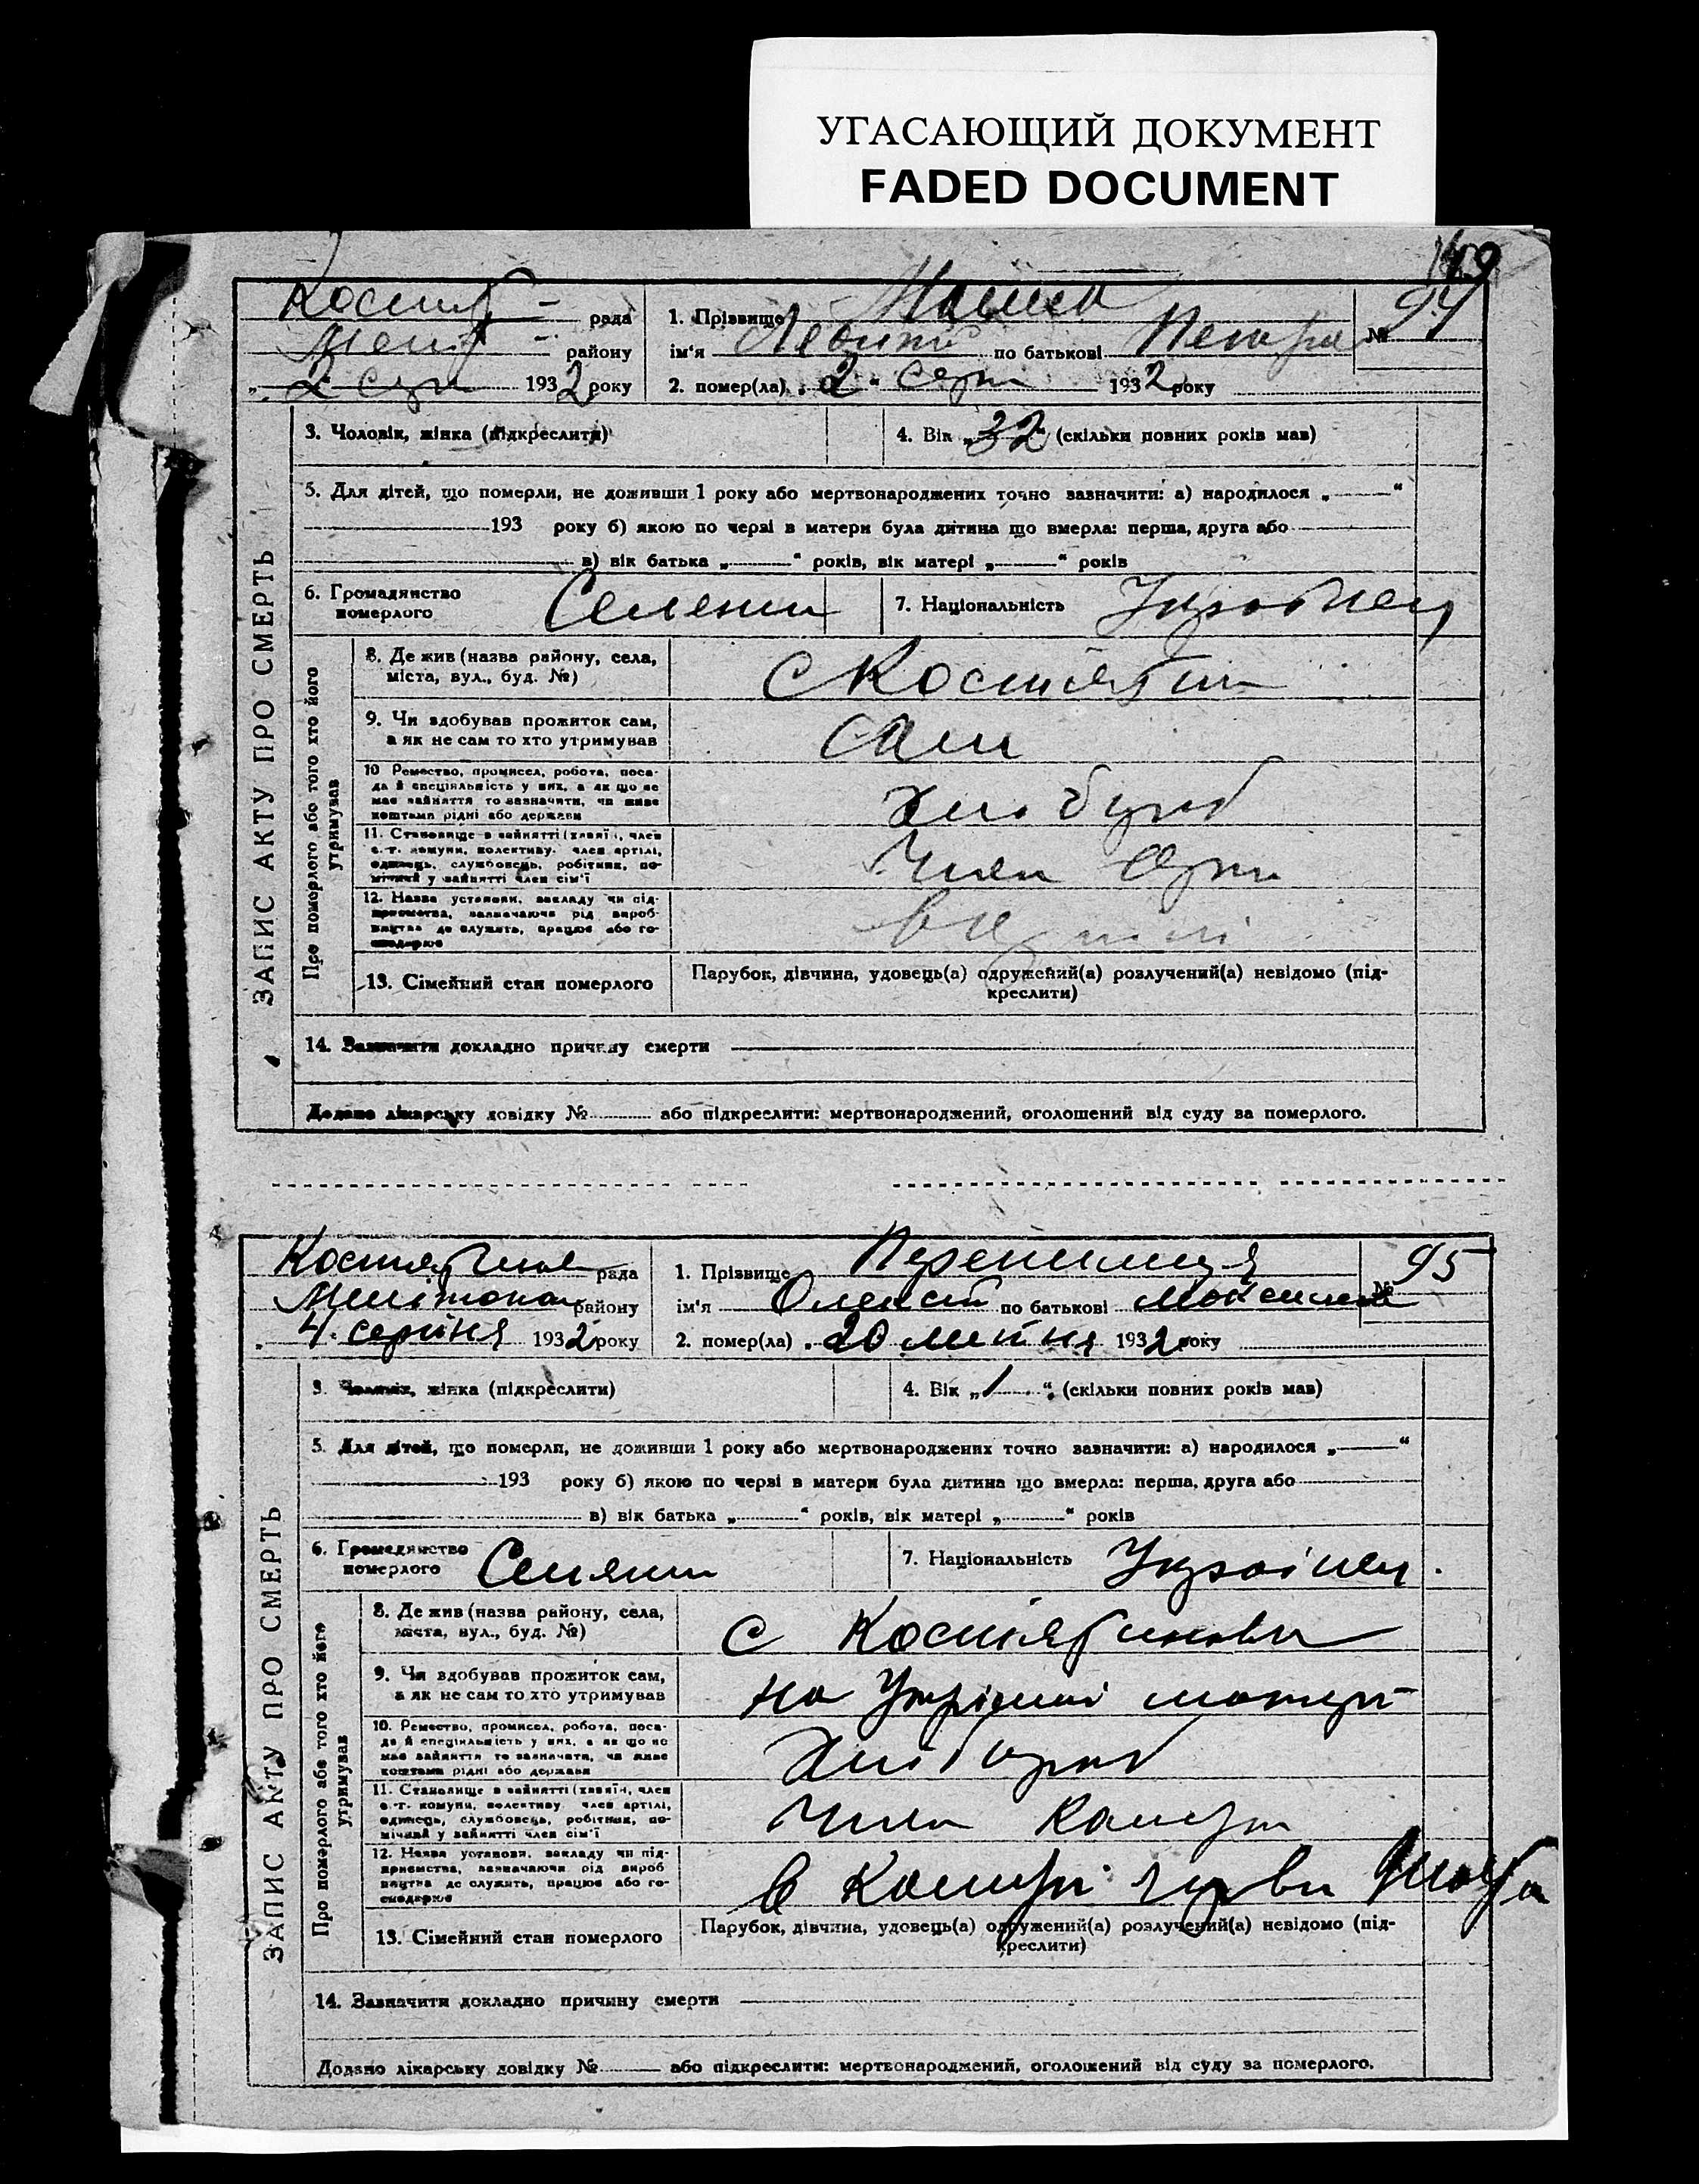 УГАСАЮЩИЙ ДОКУМЕНТ
FADED DOCUMENT
149
рада
району
„ 2 серп 1932 року
1. Прізвище
ім'я по батькові Петра
№ 94
2. помер(ла) „2“ серп 1932 року
ЗАПИС АКТУ ПРО СМЕРТЬ
3. Чоловік, жінка (підкреслити)
4. Вік „32“ (скільки повних років мав)
5. Для дітей, що померли, не доживши 1 року або мертвонароджених точно зазначити: а) народилося „ “
193 року б) якою по черзі в матери була дитина що вмерла: перша, друга або
в) вік батька „ “ років, вік матері „ “ років
6. Громадянство померлого Селянин
7. Національність Українец
Про померлого або того хто його утримував
8. Де жив (назва району, села,
міста, вул., буд. №)
с
9. Чи здобував прожиток сам,
а як не сам то хто утримував
сам
10 Ремество, промисел, робота, поса-
да й спеціяльність у них, а як що не
має зайняття то зазначити, чи живе
коштами рідні або держави
Хлібороб
11. Становище в зайнятті (хазяїн, член
с.-г. комуни, колективу, член артілі,
одинець, службовець, робітник, по-
мічний у зайнятті член сім'ї
Член
12. Назва установи, закладу чи під-
приємства, зазначаючи рід вироб-
ництва де служить, працює або го-
сподарює
в
13. Сімейний стан померлого
Парубок, дівчина, удовець(а) одружений(а) розлучений(а) невідомо (під-
креслити)
14. Зазначити докладно причину смерти
Додано лікарську довідку № або підкреслити: мертвонароджений, оголошений від суду за померлого.
рада
району
„ 4 серпня 1932 року
1. Прізвище Перепилиця
ім'я Олексій по батькові
№ 95
2. помер(ла) „20 липня 1932 року
ЗАПИС АКТУ ПРО СМЕРТЬ
3. Чоловік, жінка (підкреслити)
4. Вік „1“ (скільки повних років мав)
5. Для дітей, що померли, не доживши 1 року або мертвонароджених точно зазначити: а) народилося „ “
193 року б) якою по черзі в матери була дитина що вмерла: перша, друга або
в) вік батька „ “ років, вік матері „ “ років
6. Громадянство померлого Селянин
7. Національність Українец
Про померлого або того хто його утримував
8. Де жив (назва району, села,
міста, вул., буд. №)
с
9. Чи здобував прожиток сам,
а як не сам то хто утримував
на матері
10. Ремество, промисел, робота, поса-
да й спеціяльність у них, а як що не
має зайняття то зазначити, чи живе
коштами рідні або держави
Хлібороб
11. Становище в зайнятті (хазяїн, член
с.-г. комуни, колективу, член артілі,
одинець, службовець, робітник, по-
мічний у зайнятті член сім'ї
Член
12. Назва установи, закладу чи під-
приємства, зазначаючи рід вироб
ництва де служить, працює або го-
сподарює
в
13. Сімейний стан померлого
Парубок, дівчина, удовець(а) одружений(а) розлучений(а) невідомо (під-
креслити)
14. Зазначити докладно причину смерти
Додано лікарську довідку № або підкреслити: мертвонароджений, оголошений від суду за померлого.